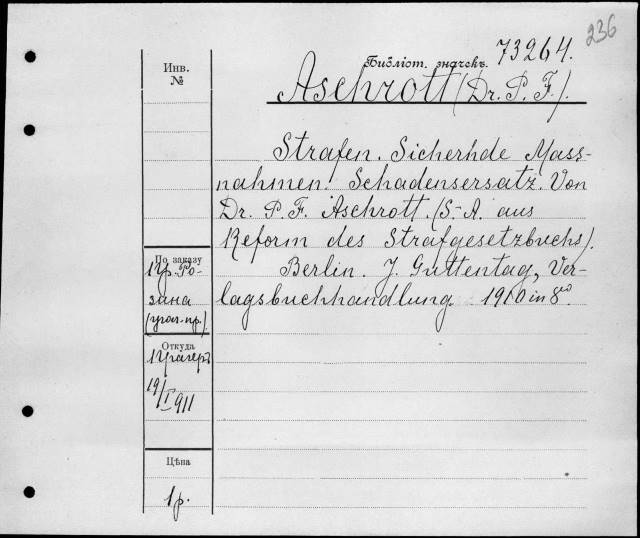 236
Библіот. значекъ. 73264.
Инв.
№
Aschrott (Dr. P. F.).
Strafen. Sicherhde Mass-
nahmen. Schadensersatz. Von
Dr. P. F. Aschrott. (S.-A. aus
Reform des Strafgesetzbuchs).
Berlin. J. Guttentag, Ver-
lagsbuchhandlung. 1910 in 8º.
По заказу
Пр. Ро-
зина
(угол. пр.)
Откуда
19/I 911
Цѣна
1 р.